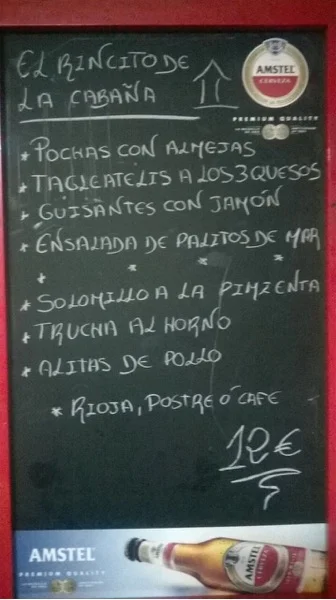 EL RINCITO DE
LA CABAÑA
AMSTEL
CERVEZA
PREMIUM QUALITY
* POCHAS CON ALMEJAS
* TAGLEATELIS A LOS 3 QUESOS
* GUISANTES CON JAMÓN
* ENSALADA DE PALITOS DE MAR
* * * *
* SOLOMILLO A LA PIMIENTA
* TRUCHA AL HORNO
* ALITAS DE POLLO
* RIOJA, POSTRE Ó CAFE
12€
AMSTEL
PREMIUM QUALITY
AMSTEL